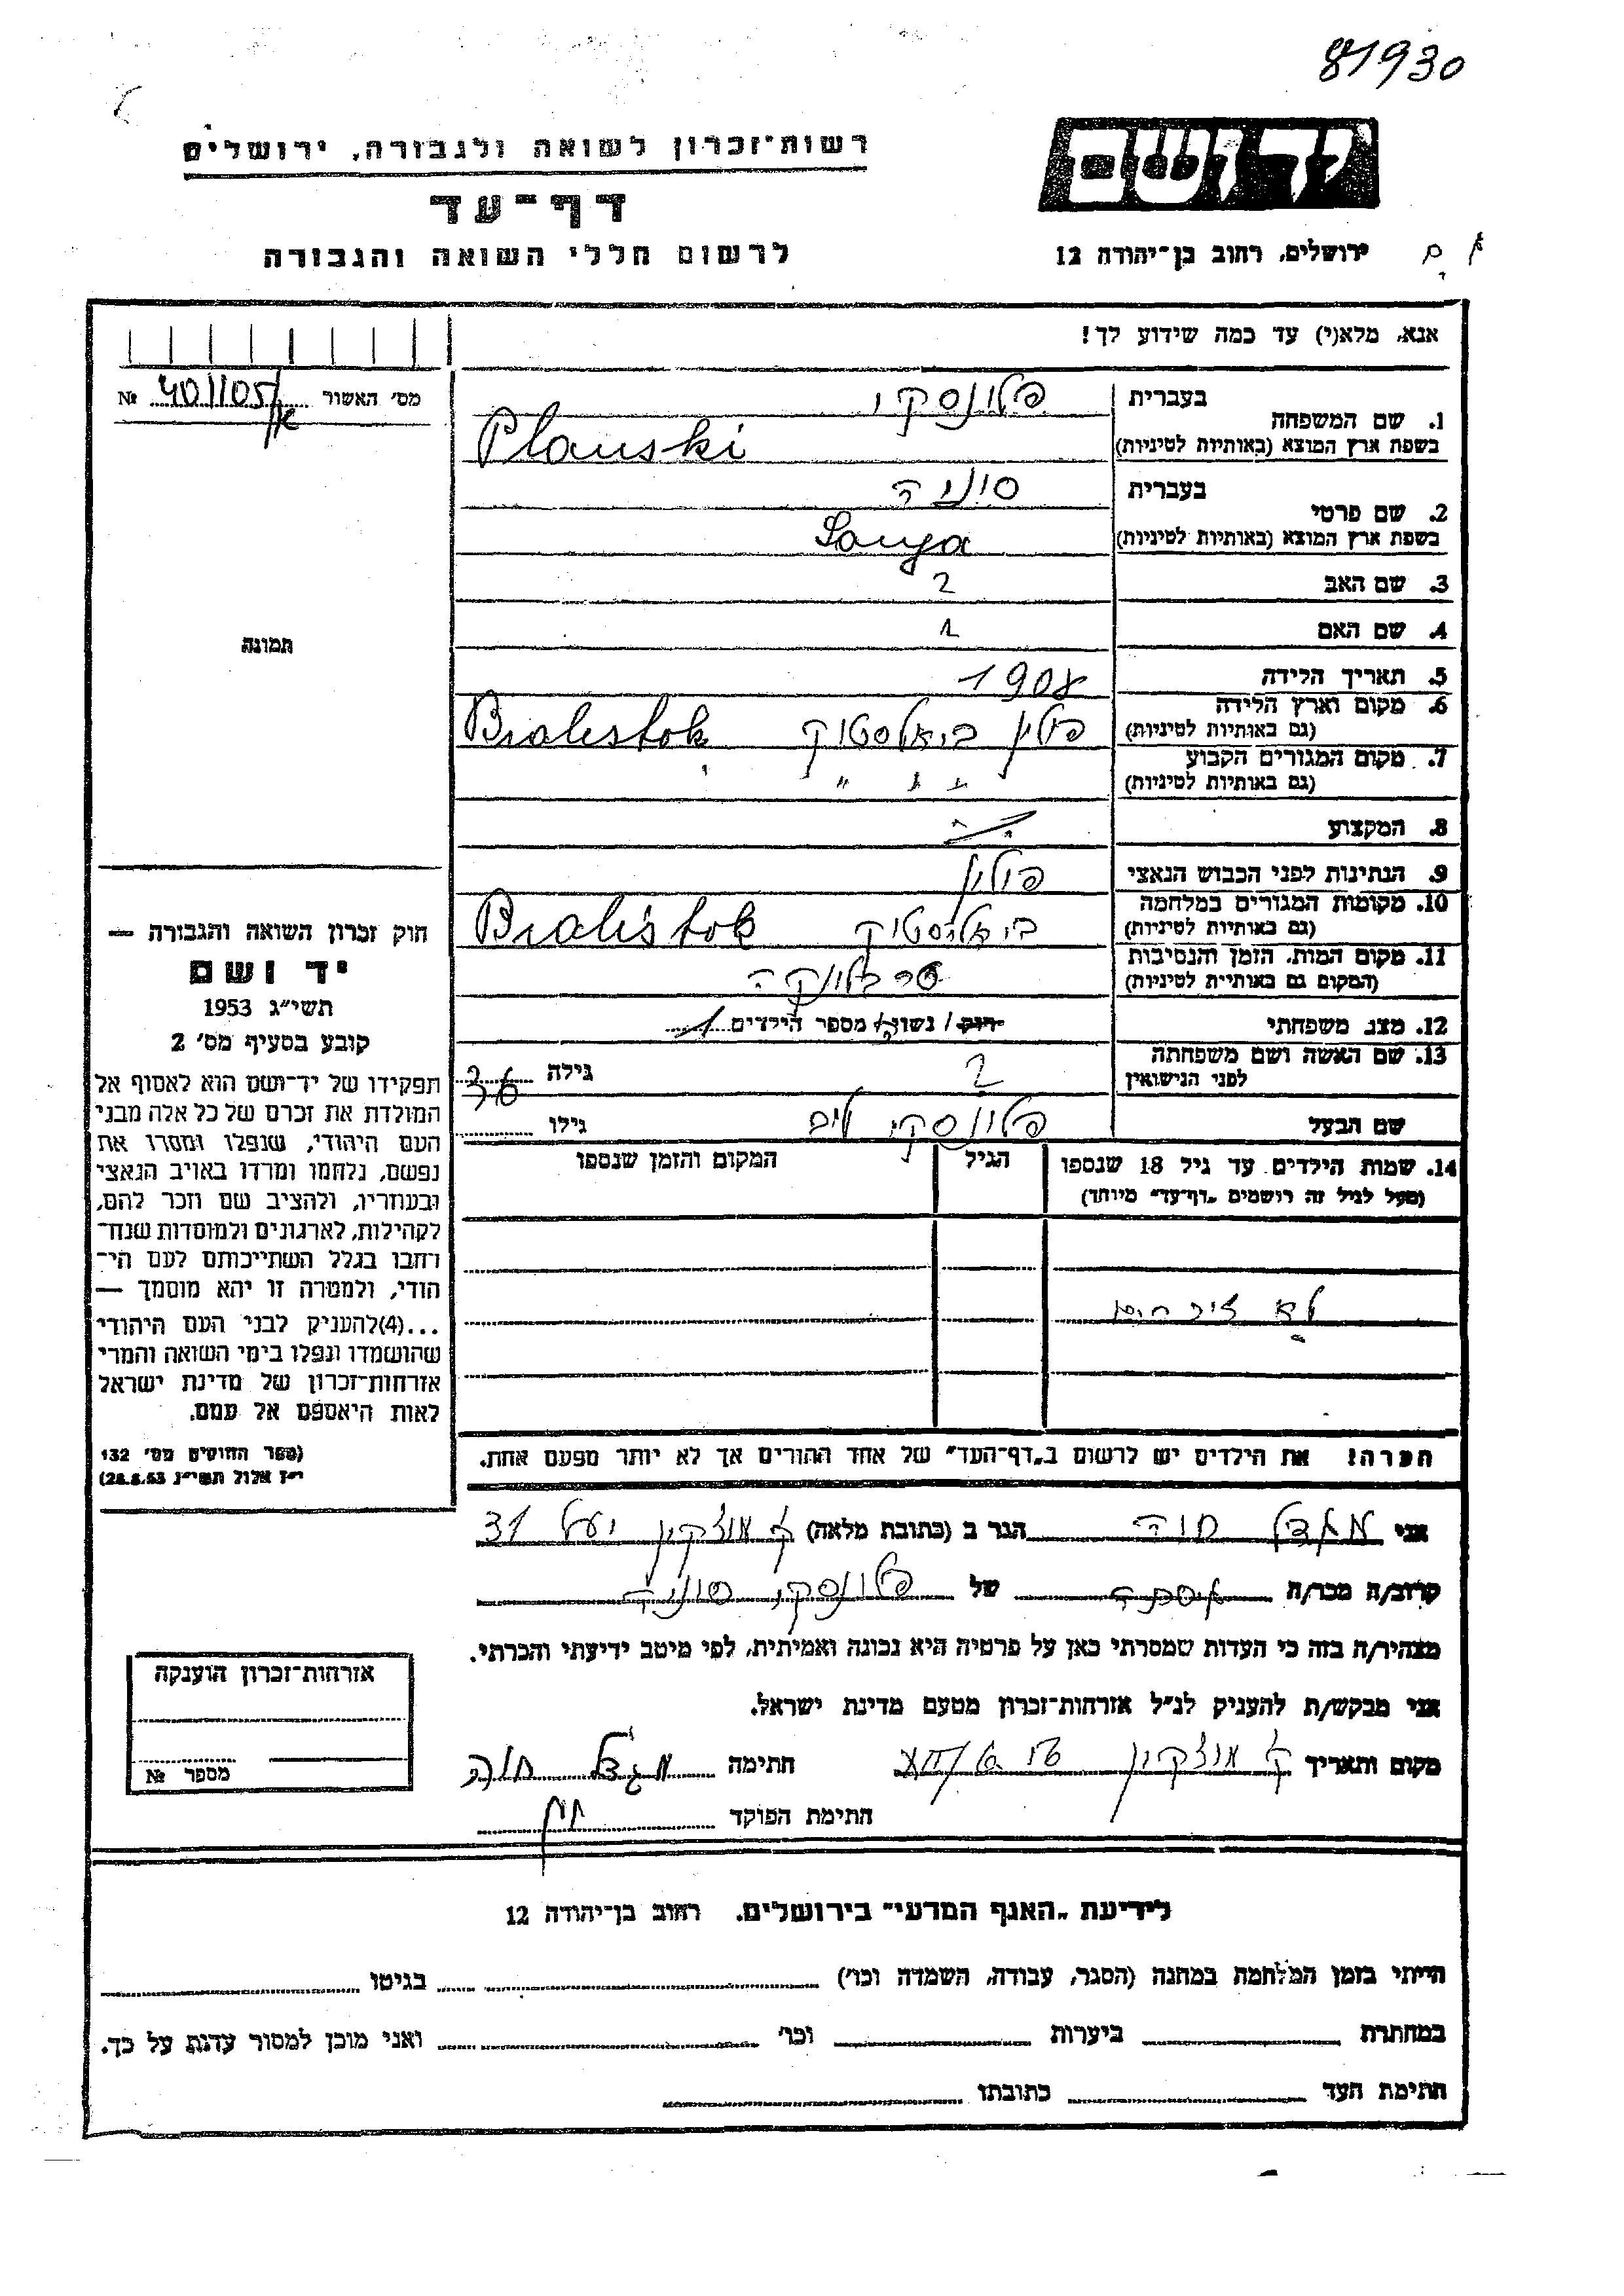 81930
רשות־זכרון לשואה ולגבורה, ירושלים
ידושם
דף־עד
ירושלים, רחוב בן־יהודה 12
לרשום חללי השואה והגבורה
אנא, מלא(י) עד כמה שידוע לך!
מס׳ האשור № 401105/א
בעברית פלונסקי
1. שם המשפחה
בשפת ארץ המוצא (באותיות לטיניות) Plonski
בעברית סוניה
2. שם פרטי
בשפת ארץ המוצא (באותיות לטיניות) Sonya
3. שם האב ?
4. שם האם
5. תאריך הלידה 1908
6. מקום וארץ הלידה
(גם באותיות לטיניות) פולין ביאלסטוק Bialestok
7. מקום המגורים הקבוע
(גם באותיות לטיניות) " " "
8. המקצוע
9. הנתינות לפני הכבוש הנאצי פולין
10. מקומות המגורים במלחמה
(גם באותיות לטיניות) ביאלסטוק Bialistok
11. מקום המות, הזמן והנסיבות
(המקום גם באותיות לטיניות) טרבלינקה
12. מצב משפחתי רווק / נשוי/ה מספר הילדים 1
13. שם האשה ושם משפחתה
לפני הנישואין ? גילה 36
שם הבעל פלונסקי לייב גילו
14. שמות הילדים עד גיל 18 שנספו הגיל המקום והזמן שנספו
(מעל לגיל זה רושמים „דף־עד" מיוחד)
לא
הערה! את הילדים יש לרשום ב„דף־העד" של אחד ההורים אך לא יותר מפעם אחת.
תמונה
חוק זכרון השואה והגבורה —
יד ושם
תשי״ג 1953
קובע בסעיף מס׳ 2
תפקידו של יד־ושם הוא לאסוף אל
המולדת את זכרם של כל אלה מבני
העם היהודי, שנפלו ומסרו את
נפשם, נלחמו ומרדו באויב הנאצי
ובעוזריו, ולהציב שם וזכר להם,
לקהילות, לארגונים ולמוסדות שנח־
רחבו בגלל השתייכותם לעם הי־
הודי, ולמטרה זו יהא מוסמך —
...(4)להעניק לבני העם היהודי
שהושמדו ונפלו בימי השואה והמרי
אזרחות־זכרון של מדינת ישראל
לאות היאספם אל עמם.
(ספר החוקים מס׳ 132
י״ז אלול תשי״ג 28.8.53)
אני מגדל חוה הגר ב (כתובת מלאה) ק׳ מוצקין יעל 31
קרוב/ה מכר/ה של פלונסקי סוניה
מצהיר/ה בזה כי העדות שמסרתי כאן על פרטיה היא נכונה ואמיתית, לפי מיטב ידיעתי והכרתי.
אני מבקש/ת להעניק לנ״ל אזרחות־זכרון מטעם מדינת ישראל.
מקום ותאריך ק׳ מוצקין חתימה מגדל חוה
חתימת הפוקד
אזרחות־זכרון הוענקה
מספר №
לידיעת „האגף המדעי" בירושלים, רחוב בן־יהודה 12
הייתי בזמן המלחמה במחנה (הסגר, עבודה, השמדה וכו׳) בגיטו
במחתרת ביערות וכו׳ ואני מוכן למסור עדות על כך.
חתימת העד כתובתו